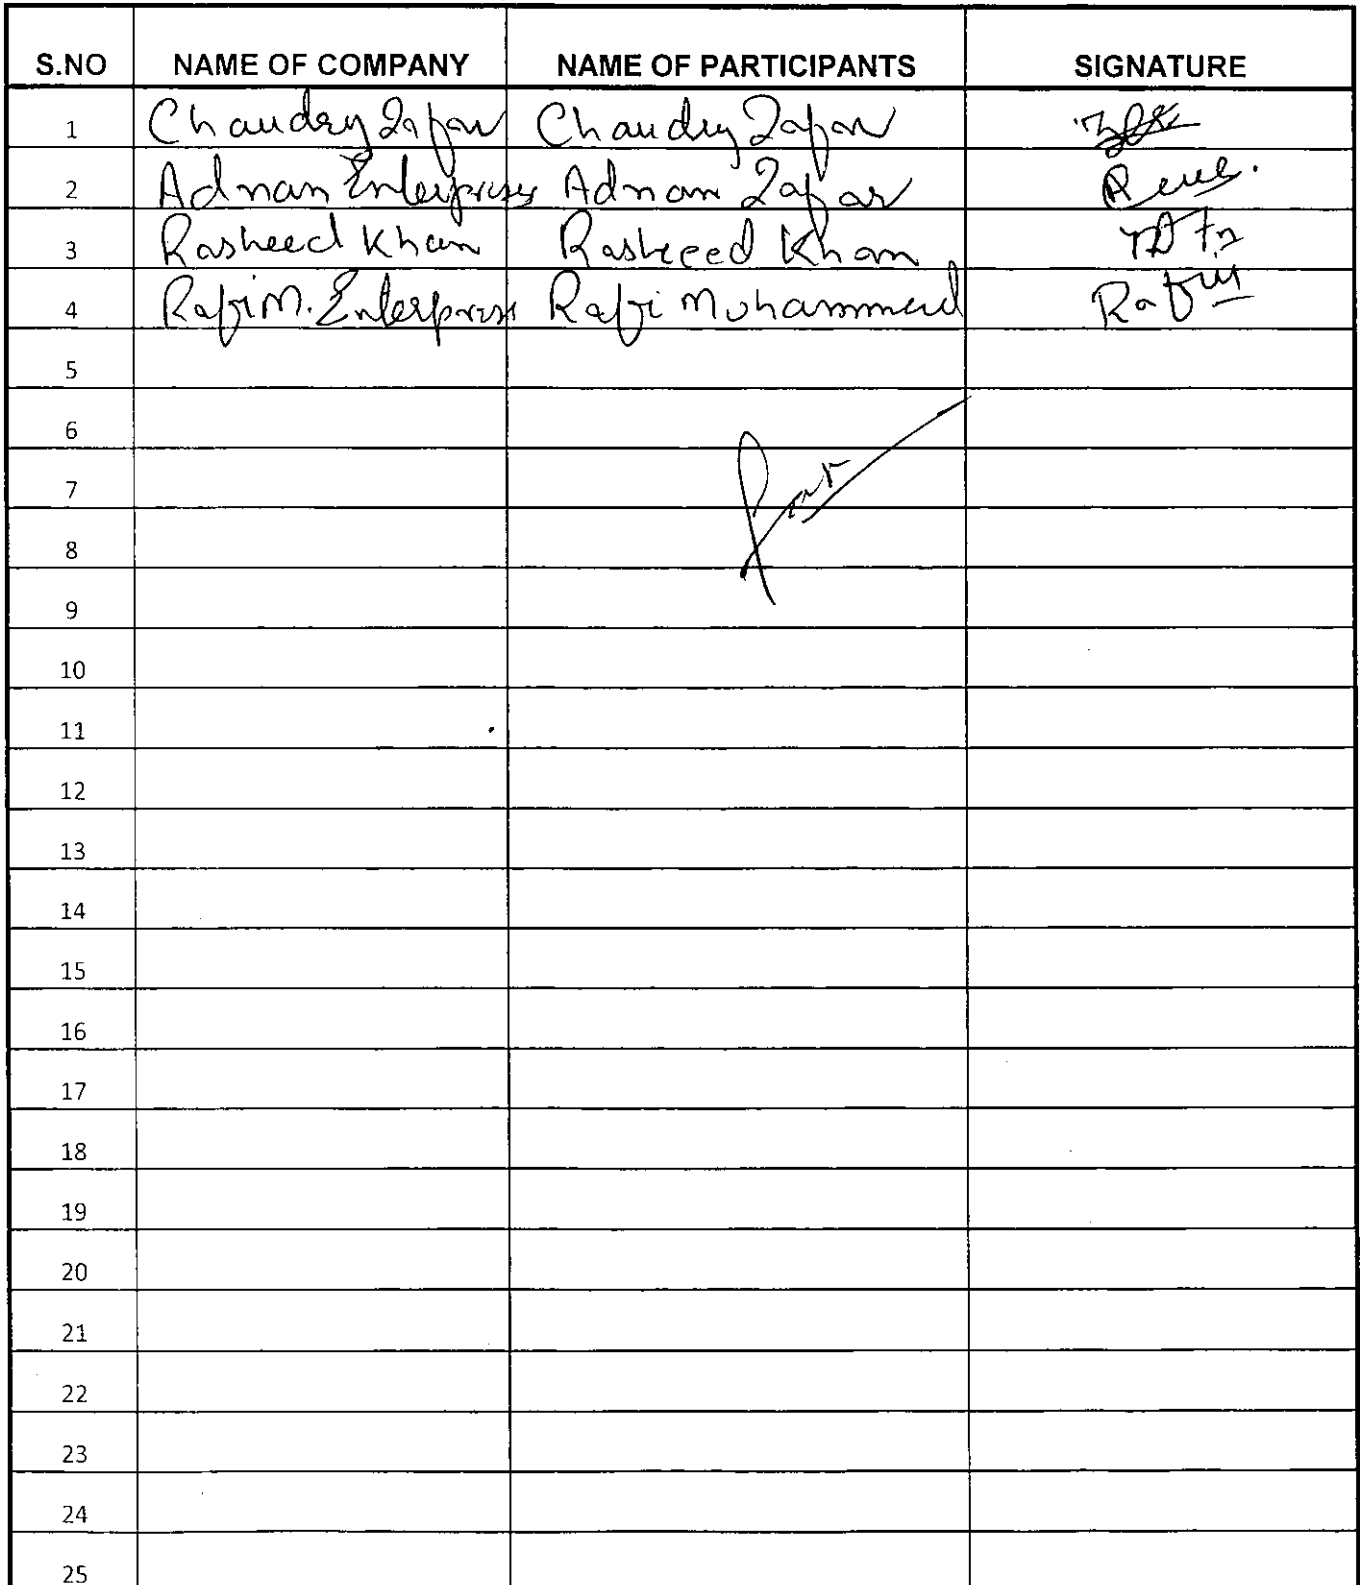 S.NO NAME OF COMPANY NAME OF PARTICIPANTS SIGNATURE
1 Chaudry Zafar Chaudry Zafar
2 Adnan Enterprises Adnan Zafar
3 Rasheed Khan Rasheed Khan
4 Rafi M. Enterprises Rafi Mohammed
5
6
7
8
9
10
11
12
13
14
15
16
17
18
19
20
21
22
23
24
25